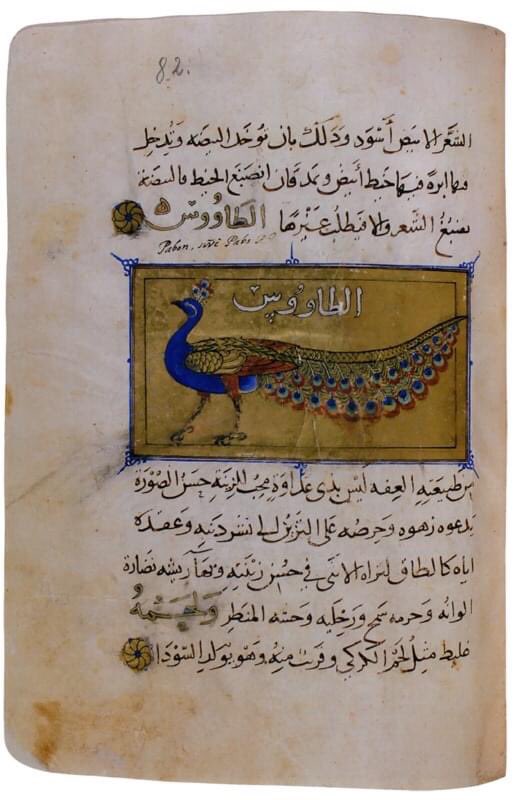 82.
الشعر الابيض أسود وذلك بان توخد البيضه وتدخل
فيها ابرة فيها خيط أبيض وتمد فان انصبغ الخيط فالبيضة
تصبغ الشعر والا فيطلب غيرها الطاووس
Pabon, sive Pabo
الطاووس
من طبيعته العفه ليس بذي عداوة محب للزينة حسن الصورة
يدعوه زهوه وحرصه على التزين الى نشر دنبه وعقده
اياه كالطاق لتراه الانثى في حسن زينته وبهآ ريشه نضارة
الوانه وحرمه سمج ورجليه وحشه المنظر ولحمه
غليظ مثل لحم الكركي وقريب منه وهو يولد السودا